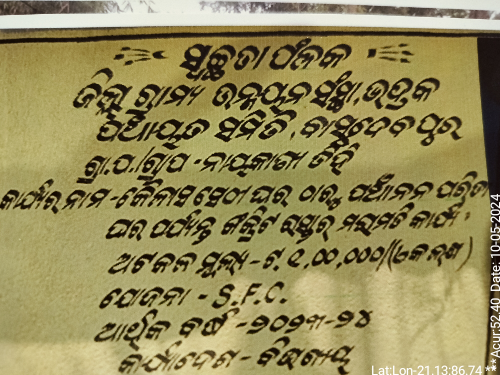 ସ୍ୱଚ୍ଛତା ଫଳକ
ଜିଲ୍ଲା ଗ୍ରାମ୍ୟ ଉନ୍ନୟନ ସଂସ୍ଥା, ଭଦ୍ରକ
ପଞ୍ଚାୟତ ସମିତି, ବାସୁଦେବପୁର
ଗ୍ରା.ପ./ଗ୍ରାପ - ନାୟକାଣୀ ଡିହି
କାର୍ଯ୍ୟର ନାମ - କୈଳାସ ସେଠୀ ଘର ଠାରୁ ପଞ୍ଚାନନ ପରିଡା
ଘର ପର୍ଯ୍ୟନ୍ତ କଂକ୍ରିଟ ରାସ୍ତାର ମରାମତି କାର୍ଯ୍ୟ
ଅଟକଳ ମୂଲ୍ୟ - ଟ.
ଯୋଜନା - S.F.C.
ଆର୍ଥିକ ବର୍ଷ - ୨୦୨୩-୨୪
କାର୍ଯ୍ୟାଦେଶ - ବିଭାଗୀୟ
Lat:Lon-21.13:86.74 ***Acur:52.40 Date: 10-05-2024